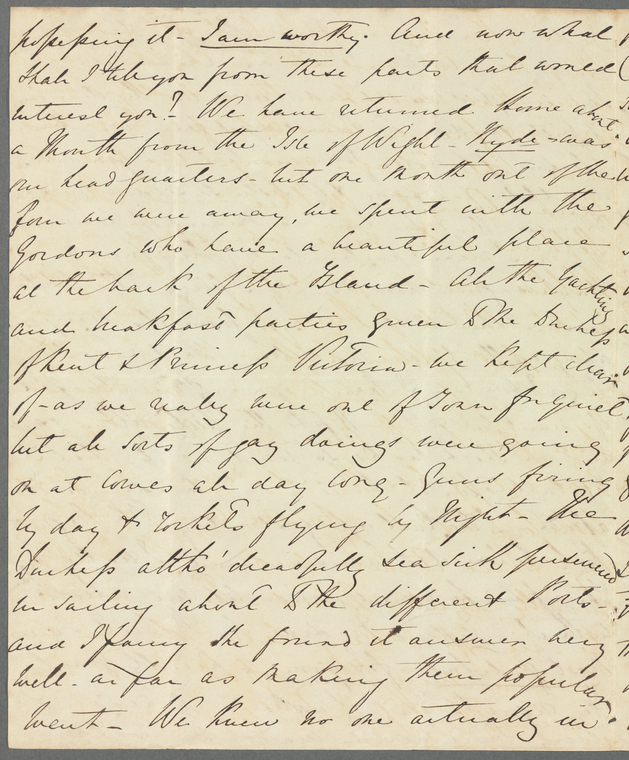 possessing it - I am worthy. And now what
shall I tell you from these parts that would
interest you? - We have returned Home about
a Month from the Isle of Wight - Ryde - was
our head quarters - but one Month out of the
four we were away, we spent with the
Gordons who have a beautiful place
at the back of the Island - All the Yachting
and breakfast parties given to the Duchess
of Kent & Princess Victoria - we kept clear
of - as we really were out of Town for quiet
but all sorts of gay doings were going
on at Cowes all day long - Guns firing
by day & rockets flying by Night - The
Duchess altho' dreadfully sea sick persevered
in sailing about to the different Ports -
and I fancy she found it answer very
well - as far as making them popular
went - We knew no one actually in